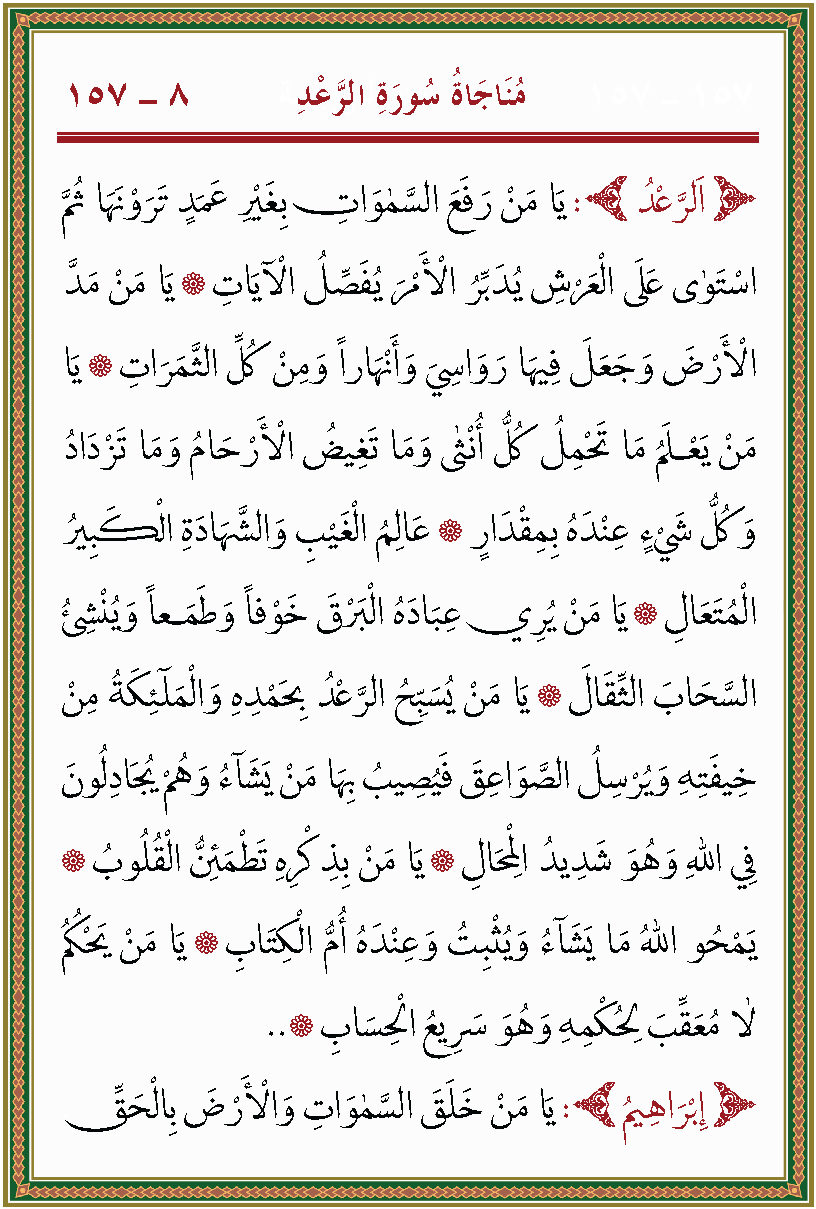 مُنَاجَاةُ سُورَةِ الرَّعْدِ ٨ ـ ١٥٧
﴿ اَلرَّعْدُ ﴾: يَا مَنْ رَفَعَ السَّمٰوَاتِ بِغَيْرِ عَمَدٍ تَرَوْنَهَا ثُمَّ
اسْتَوٰى عَلَى الْعَرْشِ يُدَبِّرُ الْأَمْرَ يُفَصِّلُ الْآيَاتِ ۞ يَا مَنْ مَدَّ
الْأَرْضَ وَجَعَلَ فِيهَا رَوَاسِيَ وَأَنْهَاراً وَمِنْ كُلِّ الثَّمَرَاتِ ۞ يَا
مَنْ يَعْلَمُ مَا تَحْمِلُ كُلُّ أُنْثٰى وَمَا تَغِيضُ الْأَرْحَامُ وَمَا تَزْدَادُ
وَكُلُّ شَيْءٍ عِنْدَهُ بِمِقْدَارٍ ۞ عَالِمُ الْغَيْبِ وَالشَّهَادَةِ الْكَبِيرُ
الْمُتَعَالِ ۞ يَا مَنْ يُرِي عِبَادَهُ الْبَرْقَ خَوْفاً وَطَمَعاً وَيُنْشِئُ
السَّحَابَ الثِّقَالَ ۞ يَا مَنْ يُسَبِّحُ الرَّعْدُ بِحَمْدِهِ وَالْمَلَٓئِكَةُ مِنْ
خِيفَتِهِ وَيُرْسِلُ الصَّوَاعِقَ فَيُصِيبُ بِهَا مَنْ يَشَٓاءُ وَهُمْ يُجَادِلُونَ
فِي اللهِ وَهُوَ شَدِيدُ الْمِحَالِ ۞ يَا مَنْ بِذِكْرِهِ تَطْمَئِنُّ الْقُلُوبُ ۞
يَمْحُو اللهُ مَا يَشَٓاءُ وَيُثْبِتُ وَعِنْدَهُ أُمُّ الْكِتَابِ ۞ يَا مَنْ يَحْكُمُ
لَا مُعَقِّبَ لِحُكْمِهِ وَهُوَ سَرِيعُ الْحِسَابِ ۞..
﴿ إِبْرَاهِيمُ ﴾: يَا مَنْ خَلَقَ السَّمٰوَاتِ وَالْأَرْضَ بِالْحَقِّ